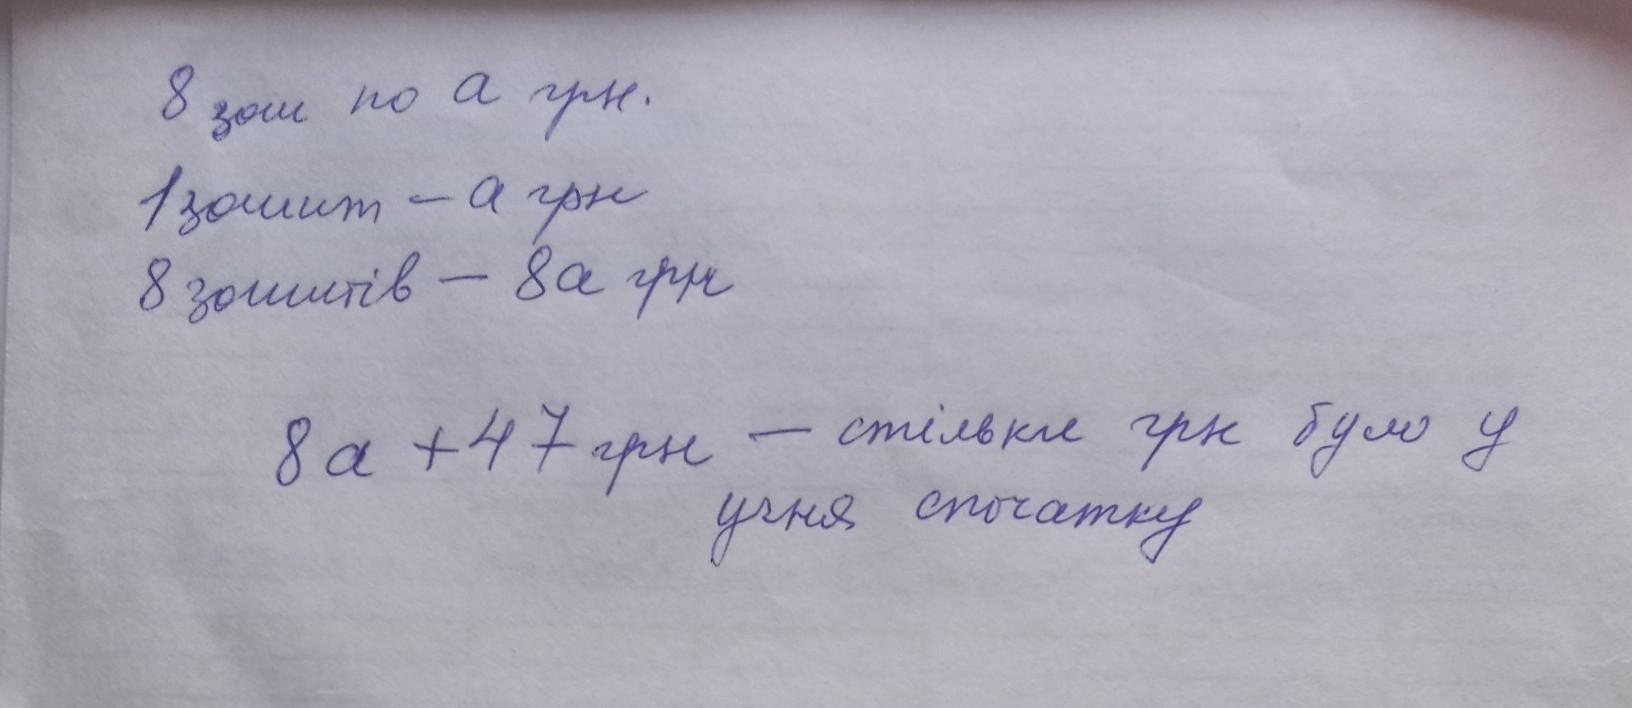 8 зош по а грн.
1 зошит – а грн
8 зошитів – 8а грн
8а + 47 грн – стільки грн було у
учня спочатку